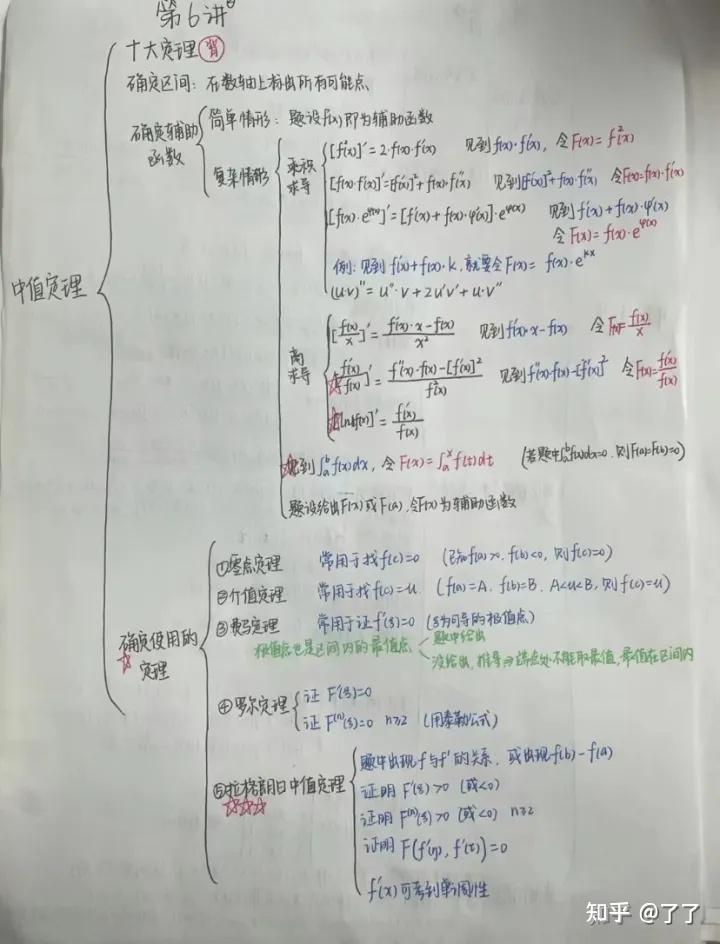 第6讲
十大定理 背
确定区间：在数轴上标出所有可能点
确定辅助函数
简单情形：题设f(x)即为辅助函数
复杂情形
乘积求导
[f²(x)]' = 2·f(x)·f'(x) 见到f(x)·f'(x)，令F(x)=f²(x)
[f(x)·f'(x)]' = [f'(x)]²+f(x)·f''(x) 见到[f'(x)]²+f(x)·f''(x) 令F(x)=f(x)·f'(x)
[f(x)·e^φ(x)]' = [f'(x)+f(x)·φ'(x)]·e^φ(x) 见到f'(x)+f(x)·φ'(x)
令F(x)=f(x)·e^φ(x)
例：见到f'(x)+f(x)·k，就要令F(x)= f(x)·e^kx
(u·v)''=u''·v+2u'v'+u·v''
中值定理
商求导
[f(x)/x]' = f'(x)·x-f(x)/x² 见到f'(x)·x-f(x) 令F(x)=f(x)/x
☆[f'(x)/f(x)]' = f''(x)·f(x)-[f'(x)]²/f²(x) 见到f''(x)·f(x)-[f'(x)]² 令F(x)=f'(x)/f(x)
☆[lnf(x)]' = f'(x)/f(x)
☆见到∫ₐᵇf(x)dx，令F(x)=∫ₐˣf(t)dt (若题中∫ₐᵇf(x)dx=0，则F(a)=F(b)=0)
题设给出F(x)或F(a)，令F(x)为辅助函数
确定使用的
☆定理
①零点定理 常用于找f(c)=0 (已知f(a)>0，f(b)<0，则f(c)=0)
②介值定理 常用于找f(c)=u (f(a)=A，f(b)=B，A<u<B，则f(c)=u)
③费马定理 常用于证f'(ξ)=0 (ξ为可导的极值点)
极值点也是区间内的最值点 题中给出
没给出，推导⇒端点处不能取最值，最值在区间内
④罗尔定理 证F'(ξ)=0
证F⁽ⁿ⁾(ξ)=0 n≥2 (用泰勒公式)
⑤拉格朗日中值定理
☆☆☆
题中出现f与f'的关系，或出现f(b)-f(a)
证明F'(ξ)>0 (或<0)
证明F⁽ⁿ⁾(ξ)>0 (或<0) n≥2
证明F(f'(η)，f'(τ))=0
f'(x)可考到单调性
知乎 @了了